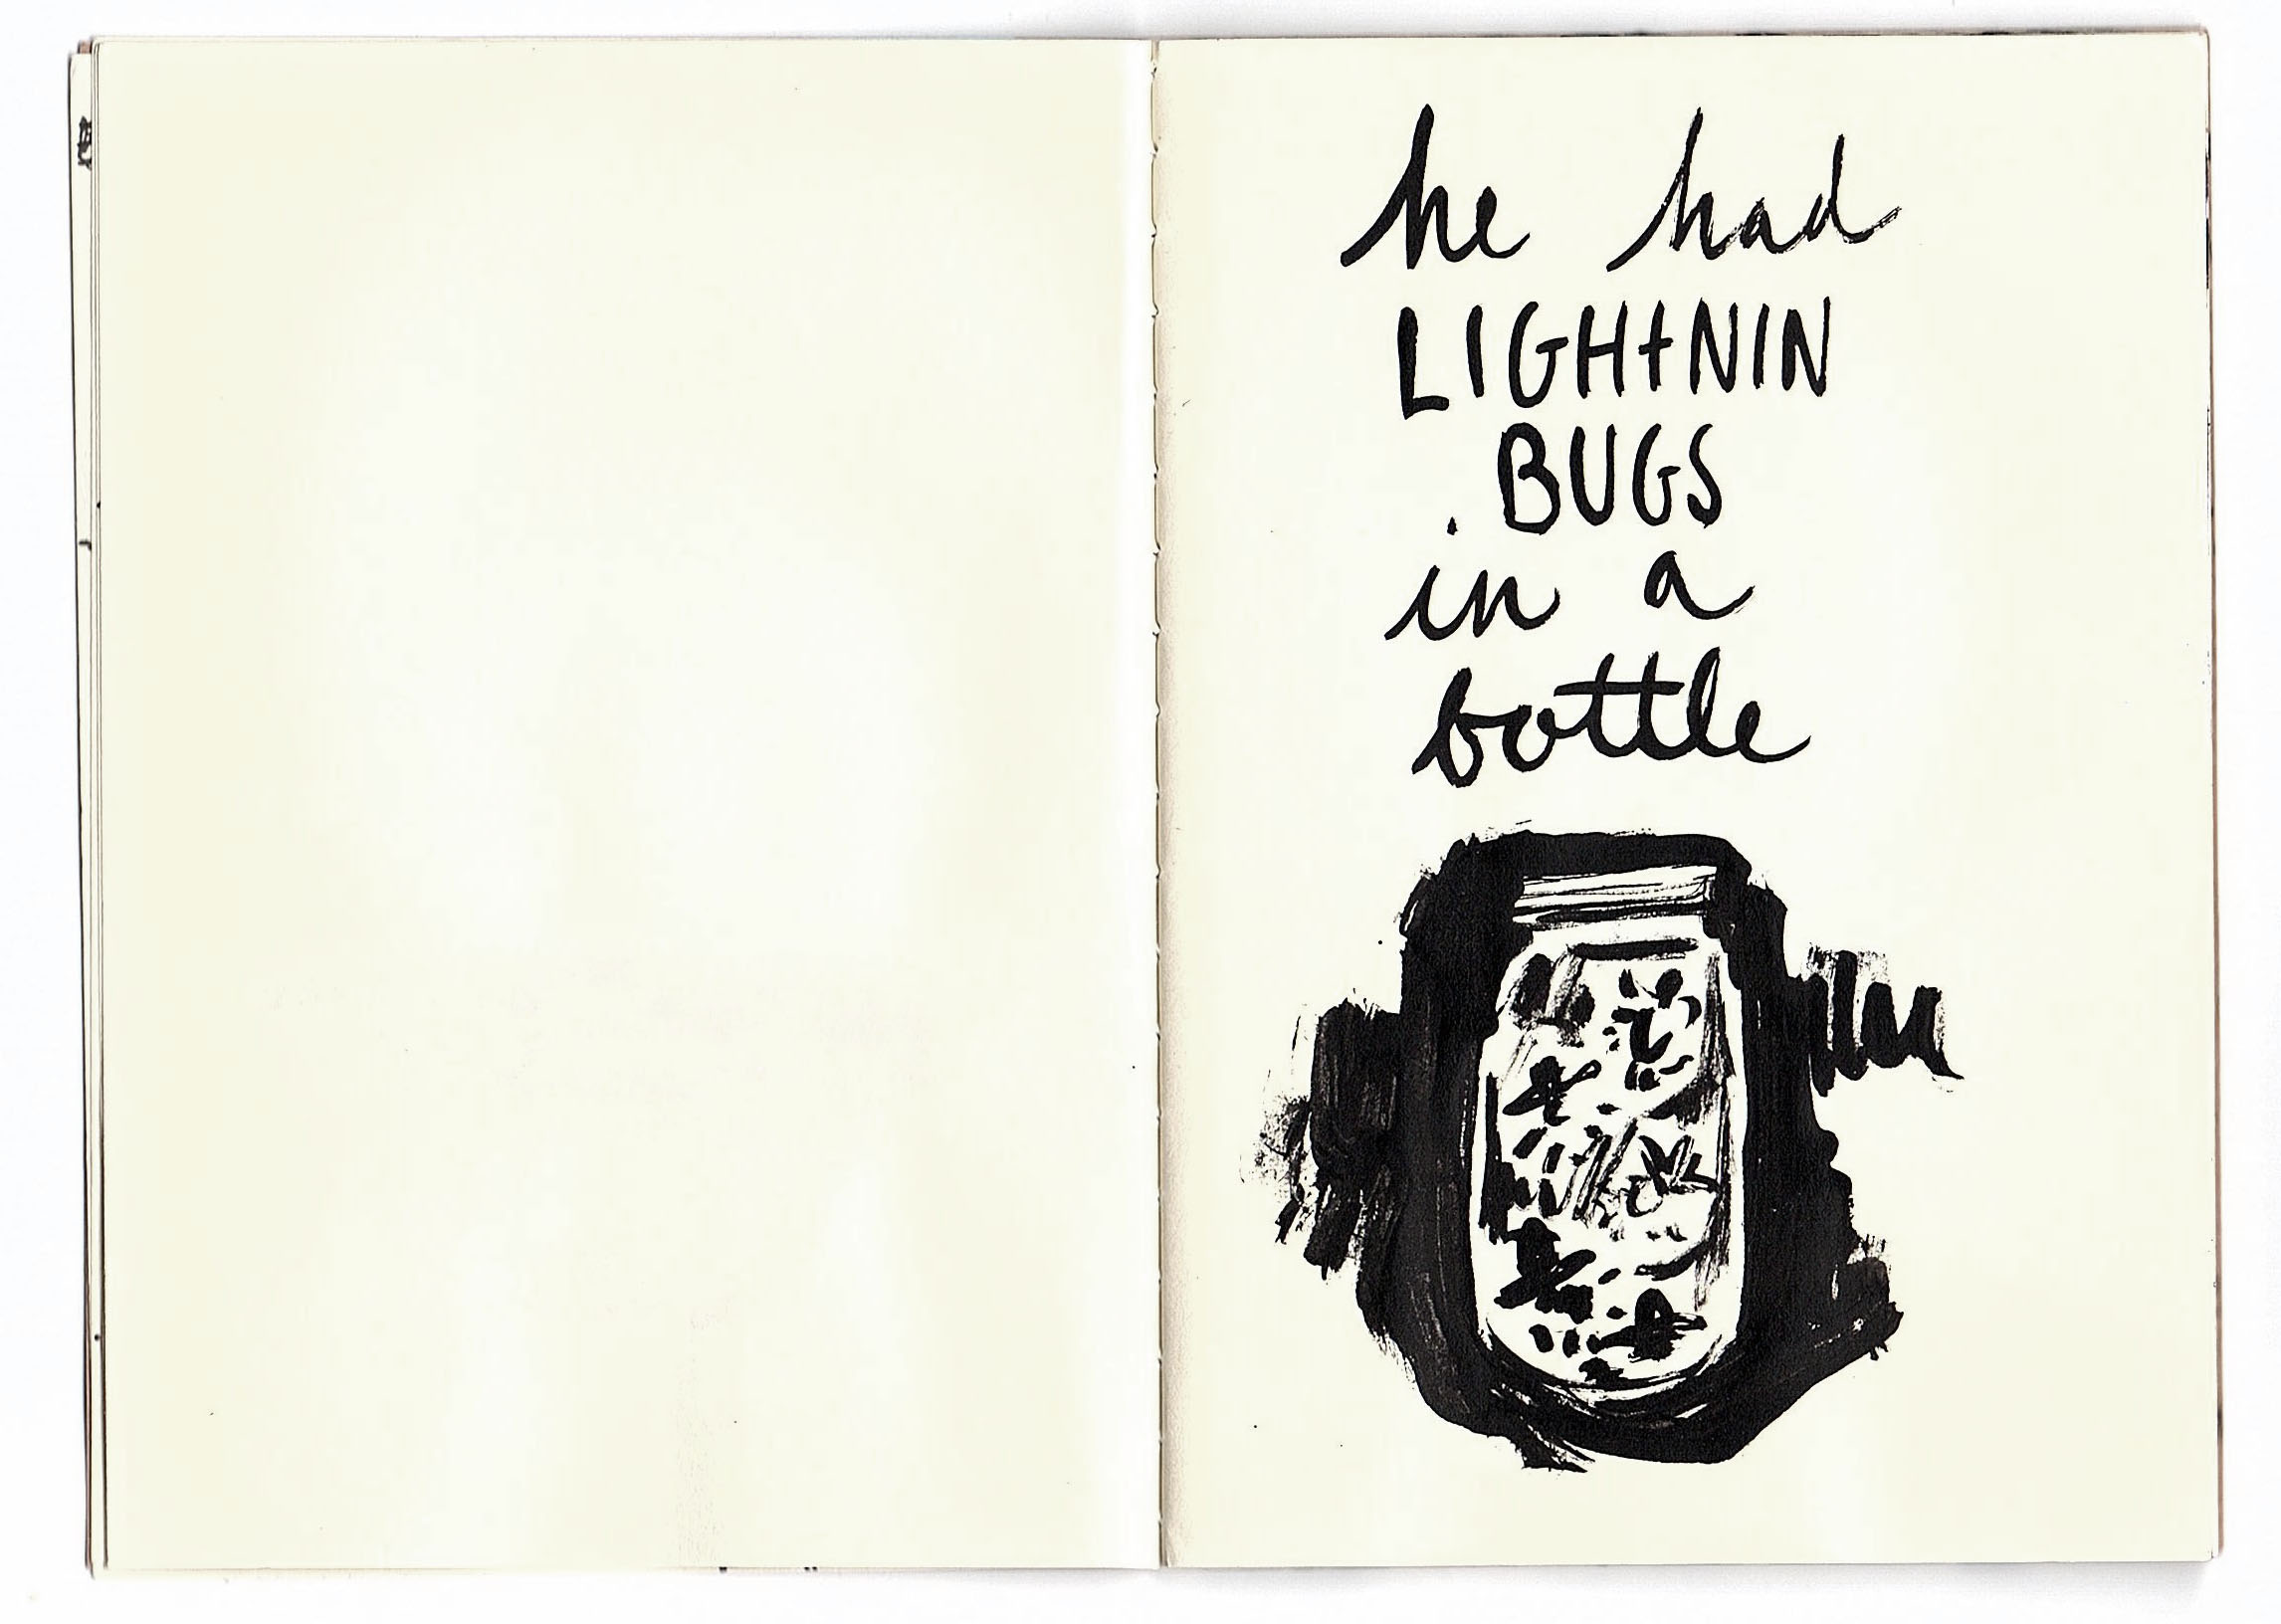 he had
LIGHtNIN
BUGS
in a
bottle